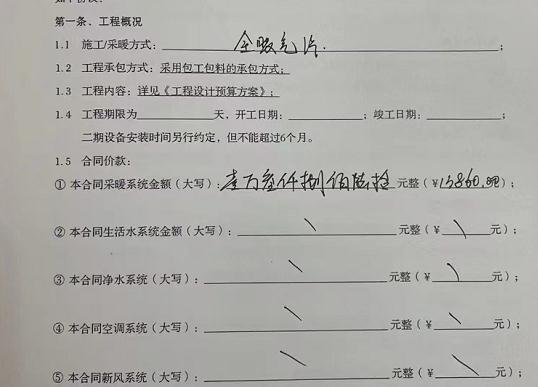 第一条、工程概况
1.1 施工/采暖方式：全暖气片；
1.2 工程承包方式：采用包工包料的承包方式；
1.3 工程内容：详见《工程设计预算方案》；
1.4 工程期限为 天，开工日期： ；竣工日期： ；
二期设备安装时间另行约定，但不能超过6个月。
1.5 合同价款：
① 本合同采暖系统金额（大写）：壹万叁仟捌佰陆拾元整（￥13860.元）；
② 本合同生活水系统金额（大写）：\元整（￥\元）；
③ 本合同净水系统（大写）：\元整（￥\元）；
④ 本合同空调系统（大写）：\元整（￥\元）；
⑤ 本合同新风系统（大写）：\元整（￥\元）；